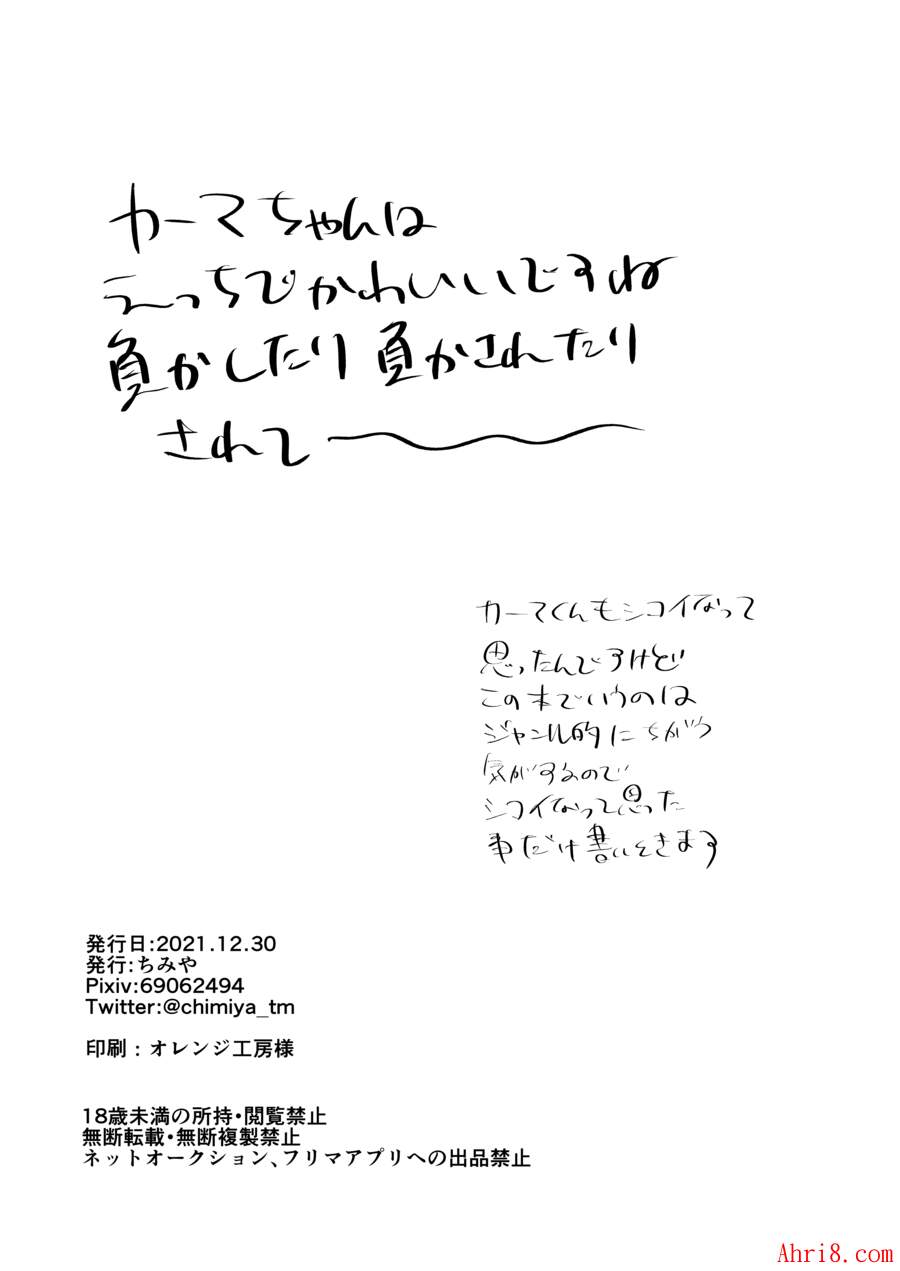 カーマちゃんは
えっちでかわいいですね
負かしたり負かされたり
されてー〜〜〜
カーマくんもシコイなって
思ったんですけど
この本でいうのは
ジャンル的にちがう
気がするので
シコイなって思った
事だけ書いときます
発行日:2021.12.30
発行:ちみや
Pixiv:69062494
Twitter:@chimiya_tm
印刷：オレンジ工房様
18歳未満の所持・閲覧禁止
無断転載・無断複製禁止
ネットオークション、フリマアプリへの出品禁止
Ahri8.com